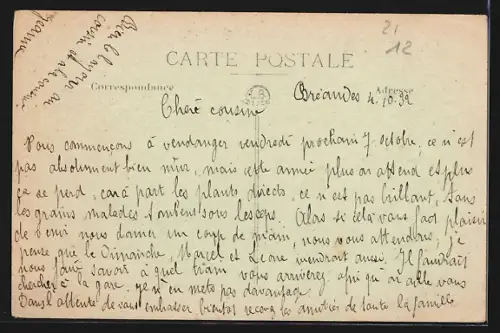 Bien le bonjour au
cousin et à la cousine
Jeanne
21
12
CARTE POSTALE
Correspondance
Adresse
Bréandes 4.10.32
Cheré cousine
Nous commençons à vendanger vendredi prochain 7 octobre, ce n'est
pas absolument bien mûr, mais cette année plus on attend et plus
ça se perd, car à part les plants directs, ce n'est pas brillant, tous
les grains malades tombent sous les ceps. Alors si cela vous fait plaisir
de venir nous donner un coup de main, nous vous attendons, je
pense que le Dimanche, Marcel et Léone viendront aussi. Il faudrait
nous faire savoir à quel train vous arriverez afin qu'on aille vous
chercher à la gare, je n'en mets pas davantage
Dans l'attente de vous embrasser bientôt recevez les amitiés de toute la famille